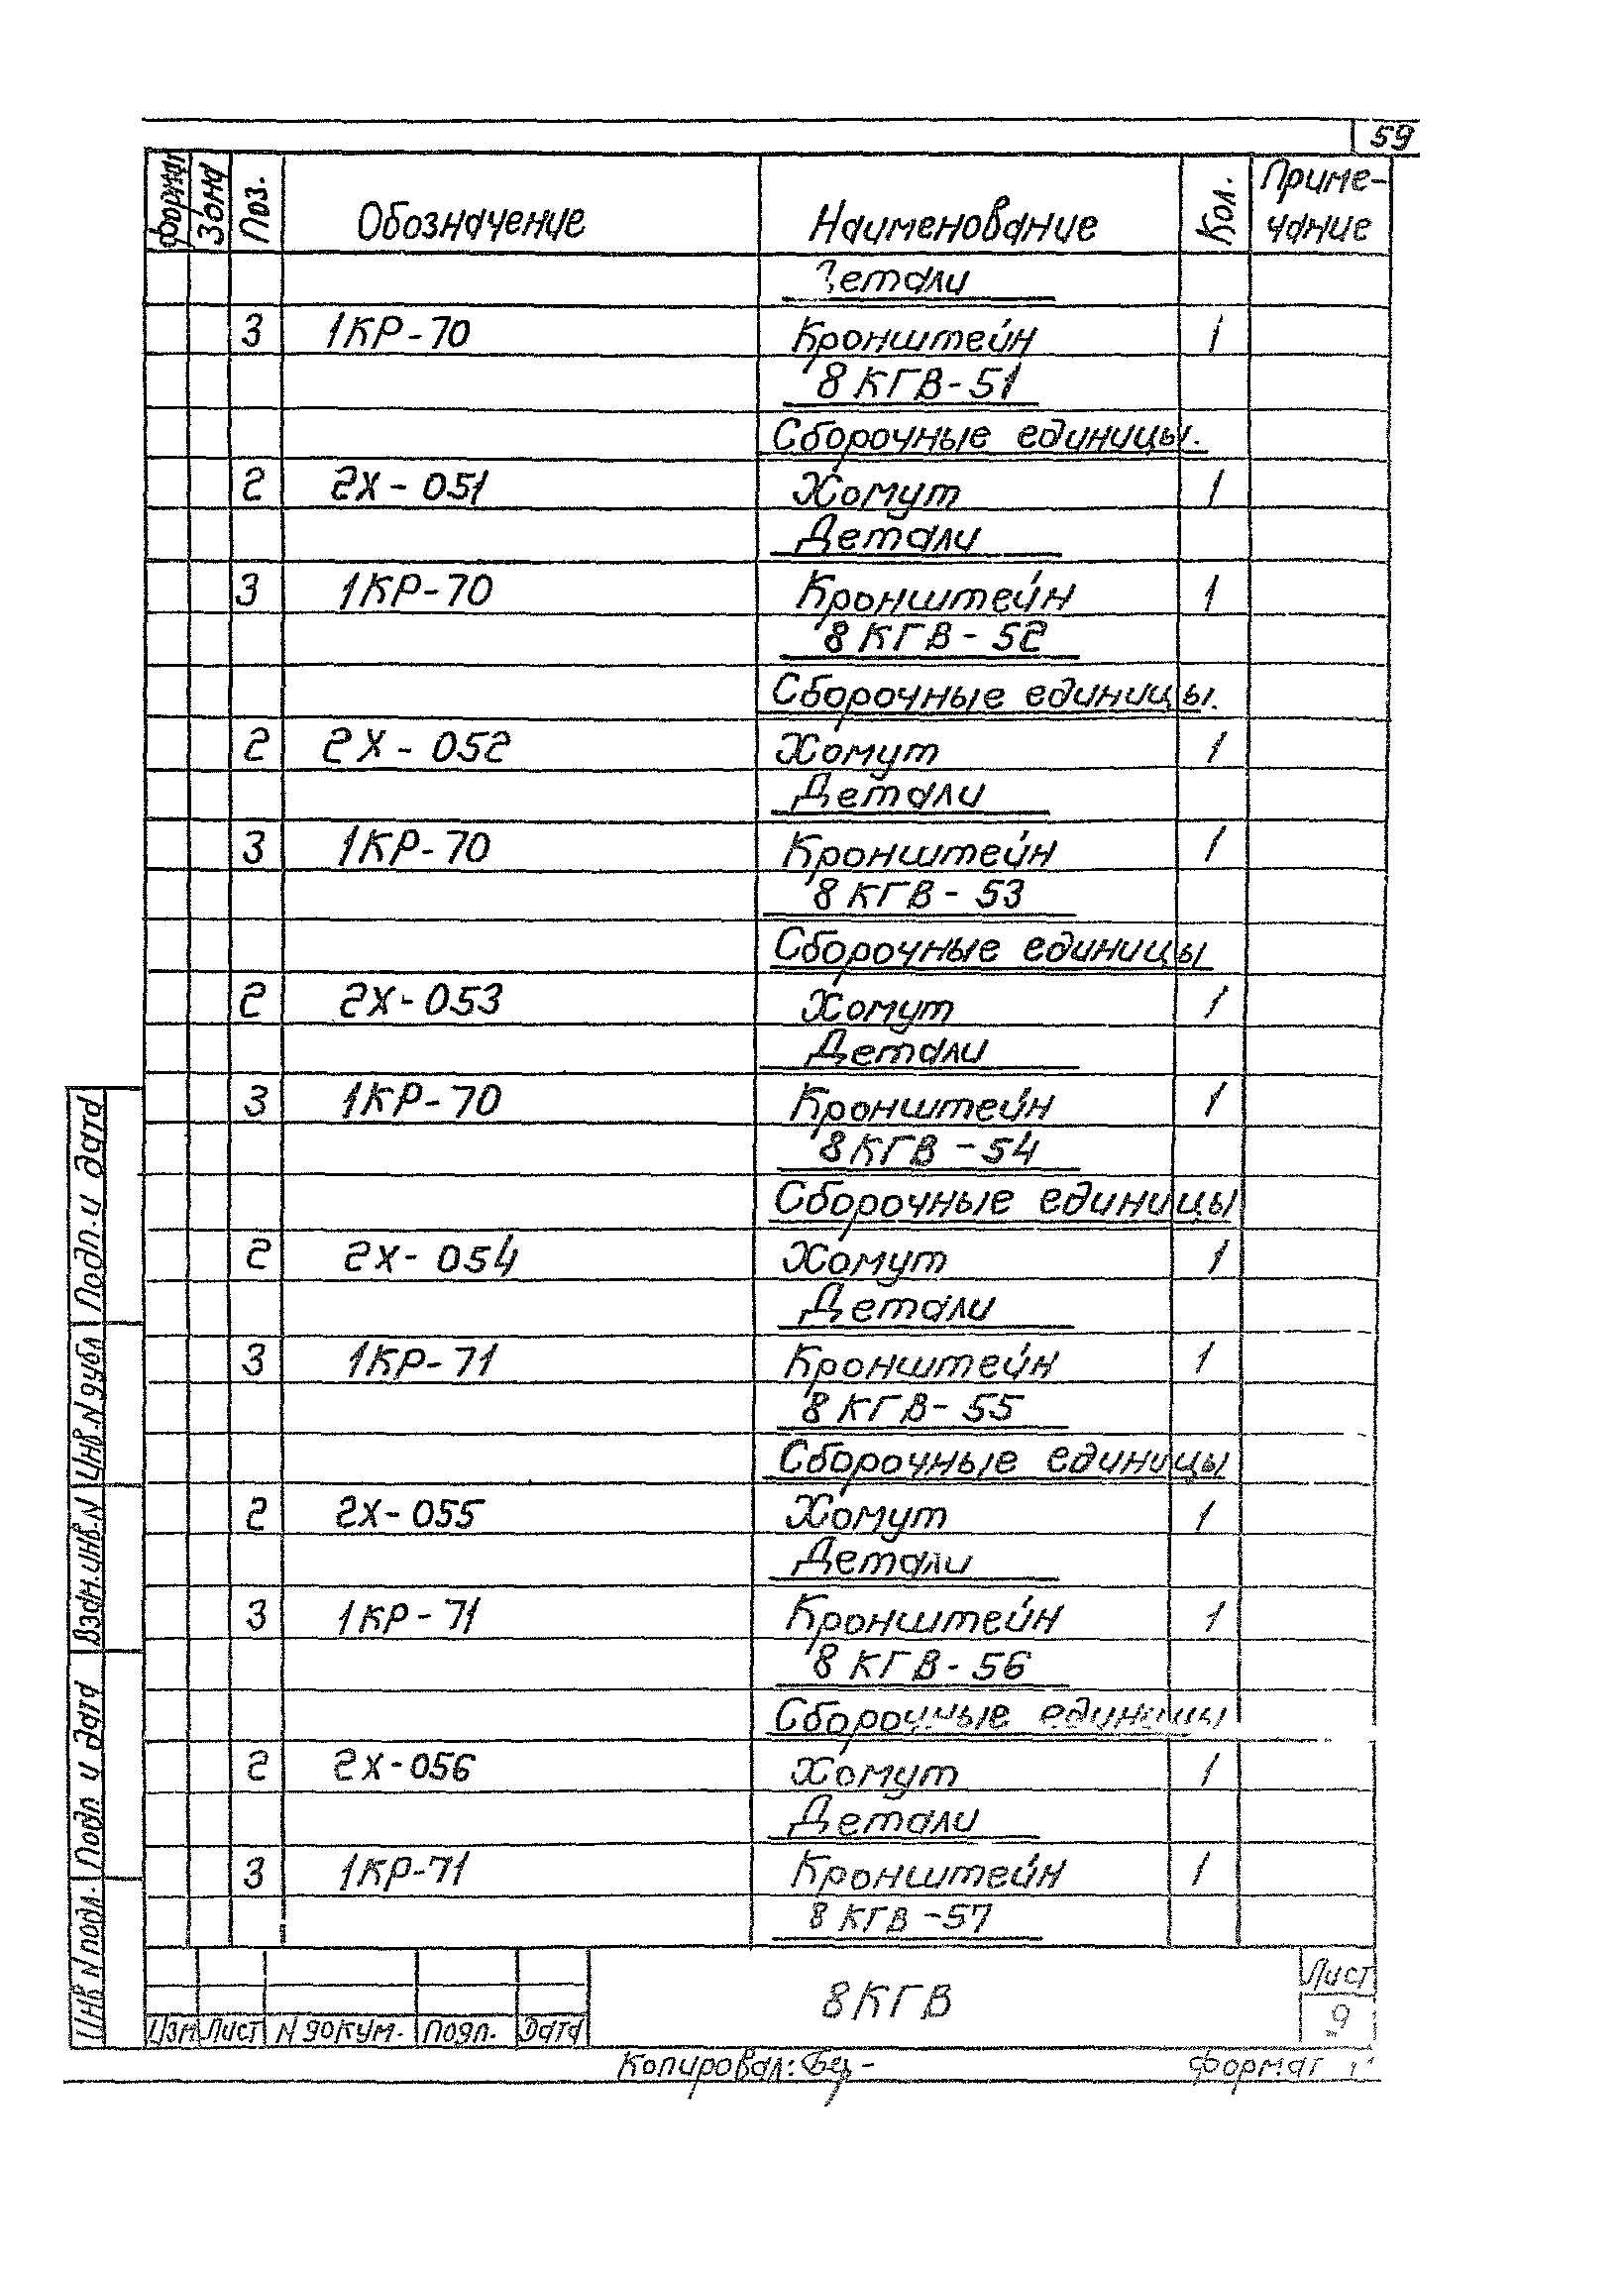 59
Формат Зона Поз. Обозначение Наименование Кол. Приме-
чание
Детали
3 1КР-70 Кронштейн 1
8КГВ-51
Сборочные единицы.
2 2Х-051 Хомут 1
Детали
3 1КР-70 Кронштейн 1
8КГВ-52
Сборочные единицы.
2 2Х-052 Хомут 1
Детали
3 1КР-70 Кронштейн 1
8КГВ-53
Сборочные единицы
2 2Х-053 Хомут 1
Детали
3 1КР-70 Кронштейн 1
8КГВ-54
Сборочные единицы
2 2Х-054 Хомут 1
Детали
3 1КР-71 Кронштейн 1
8КГВ-55
Сборочные единицы
2 2Х-055 Хомут 1
Детали
3 1КР-71 Кронштейн 1
8КГВ-56
Сборочные единицы
2 2Х-056 Хомут 1
Детали
3 1КР-71 Кронштейн 1
8КГВ-57
Подп. и дата
Инв. N дубл
Взам. инв. N
Подп и дата
Инв N подл.
8КГВ
Лист
9
Изм Лист N докум. Подп. Дата
Копировал: Формат